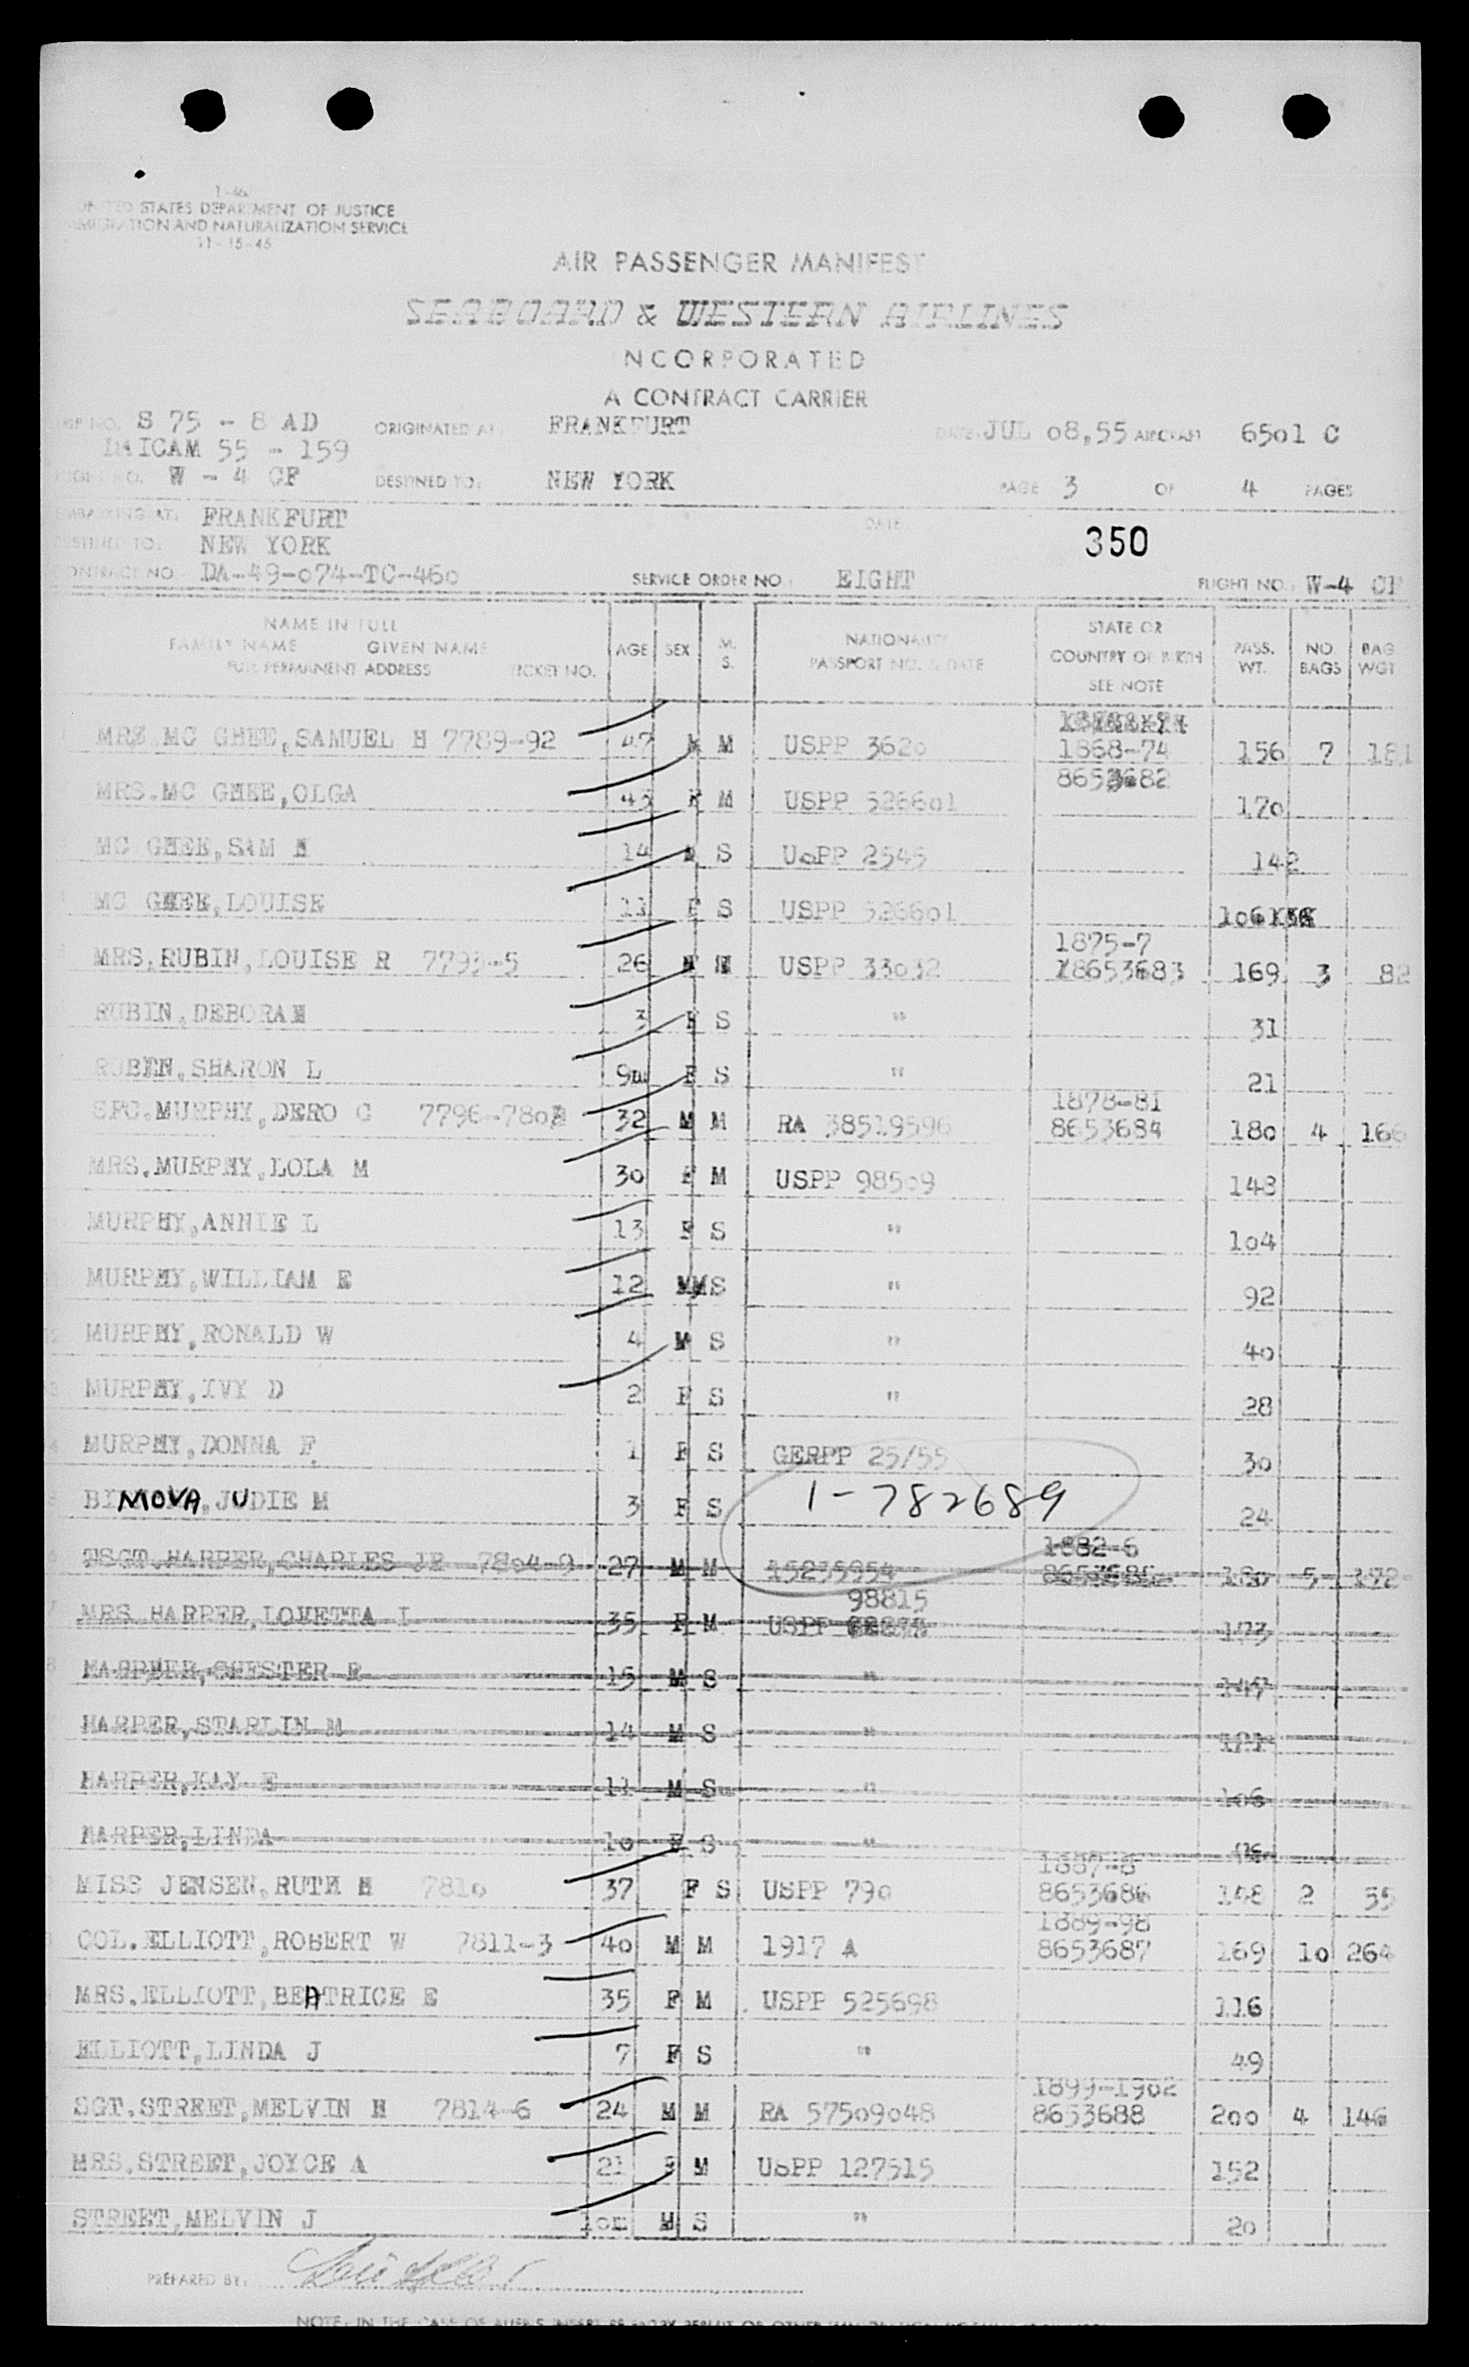 1-46
UNITED STATES DEPARTMENT OF JUSTICE
IMMIGRATION AND NATURALIZATION SERVICE
11-15-45
AIR PASSENGER MANIFEST
SEABOARD & WESTERN AIRLINES
INCORPORATED
A CONTRACT CARRIER
TRIP NO. S 75 - 8 AD ORIGINATED AT: FRANKFURT DATE: JUL 08,55 AIRCRAFT 6501 C
DAICAM 55 - 159
FLIGHT NO. W - 4 CF DESTINED TO: NEW YORK PAGE 3 OF 4 PAGES
EMBARKING AT: FRANKFURT DATE
DESTINED TO: NEW YORK 350
CONTRACT NO. DA-49-074-TC-460 SERVICE ORDER NO.: EIGHT FLIGHT NO.: W-4 CF
NAME IN FULL
FAMILY NAME GIVEN NAME
FOR PERMANENT ADDRESS TICKET NO. AGE SEX M. S. NATIONALITY PASSPORT NO. & DATE STATE OR COUNTRY OF BIRTH SEE NOTE PASS. WT. NO. BAGS BAG WGT
MC GHEE,SAMUEL H 7789-92 47 M M USPP 3620 1868-74 156 7 181
MRS.MC GHEE,OLGA 43 F M USPP 526601 8653682 170
MC GHEE,SAM H 14 M S USPP 2545 142
MC GHEE,LOUISE 11 F S USPP 526601 106
MRS.RUBIN,LOUISE R 7793-5 26 F M USPP 33032 1875-7 8653683 169 3 82
RUBIN,DEBORAH 3 F S " 31
RUBEN,SHARON L 9m F S " 21
SFC.MURPHY,DERO C 7796-7803 32 M M RA 38519596 1878-81 8653684 180 4 166
MRS.MURPHY,LOLA M 30 F M USPP 98509 148
MURPHY,ANNIE L 13 F S " 104
MURPHY,WILLIAM E 12 MMS " 92
MURPHY,RONALD W 4 M S " 40
MURPHY,IVY D 2 F S " 28
MURPHY,DONNA F. 1 F S GERPP 25/55 30
MOVA,JUDIE M 3 F S 1-782689 24
TSGT.HARPER,CHARLES JR 7804-9 27 M M 15235954 1882-6 8653685 180 5 172
MRS HARPER,LORETTA I 35 F M USPP 98815 173
HARPER,CHESTER R 15 M S " 147
HARPER,STARLIN M 14 M S " 121
HARPER,KAY E 11 M S " 106
HARPER,LINDA 10 F S "
MISS JENSEN,RUTH H 7810 37 F S USPP 790 1887-8 8653686 148 2 55
COL.ELLIOTT,ROBERT W 7811-3 40 M M 1917 A 1889-98 8653687 169 10 264
MRS.ELLIOTT,BEATRICE E 35 F M USPP 525698 116
ELLIOTT,LINDA J 7 F S " 49
SGT.STREET,MELVIN H 7814-6 24 M M RA 57509048 1899-1902 8653688 200 4 146
MRS.STREET,JOYCE A 21 F M USPP 127515 152
STREET,MELVIN J 10m M S " 20
PREPARED BY:
NOTE: IN THE CASE OF ALIENS INSERT